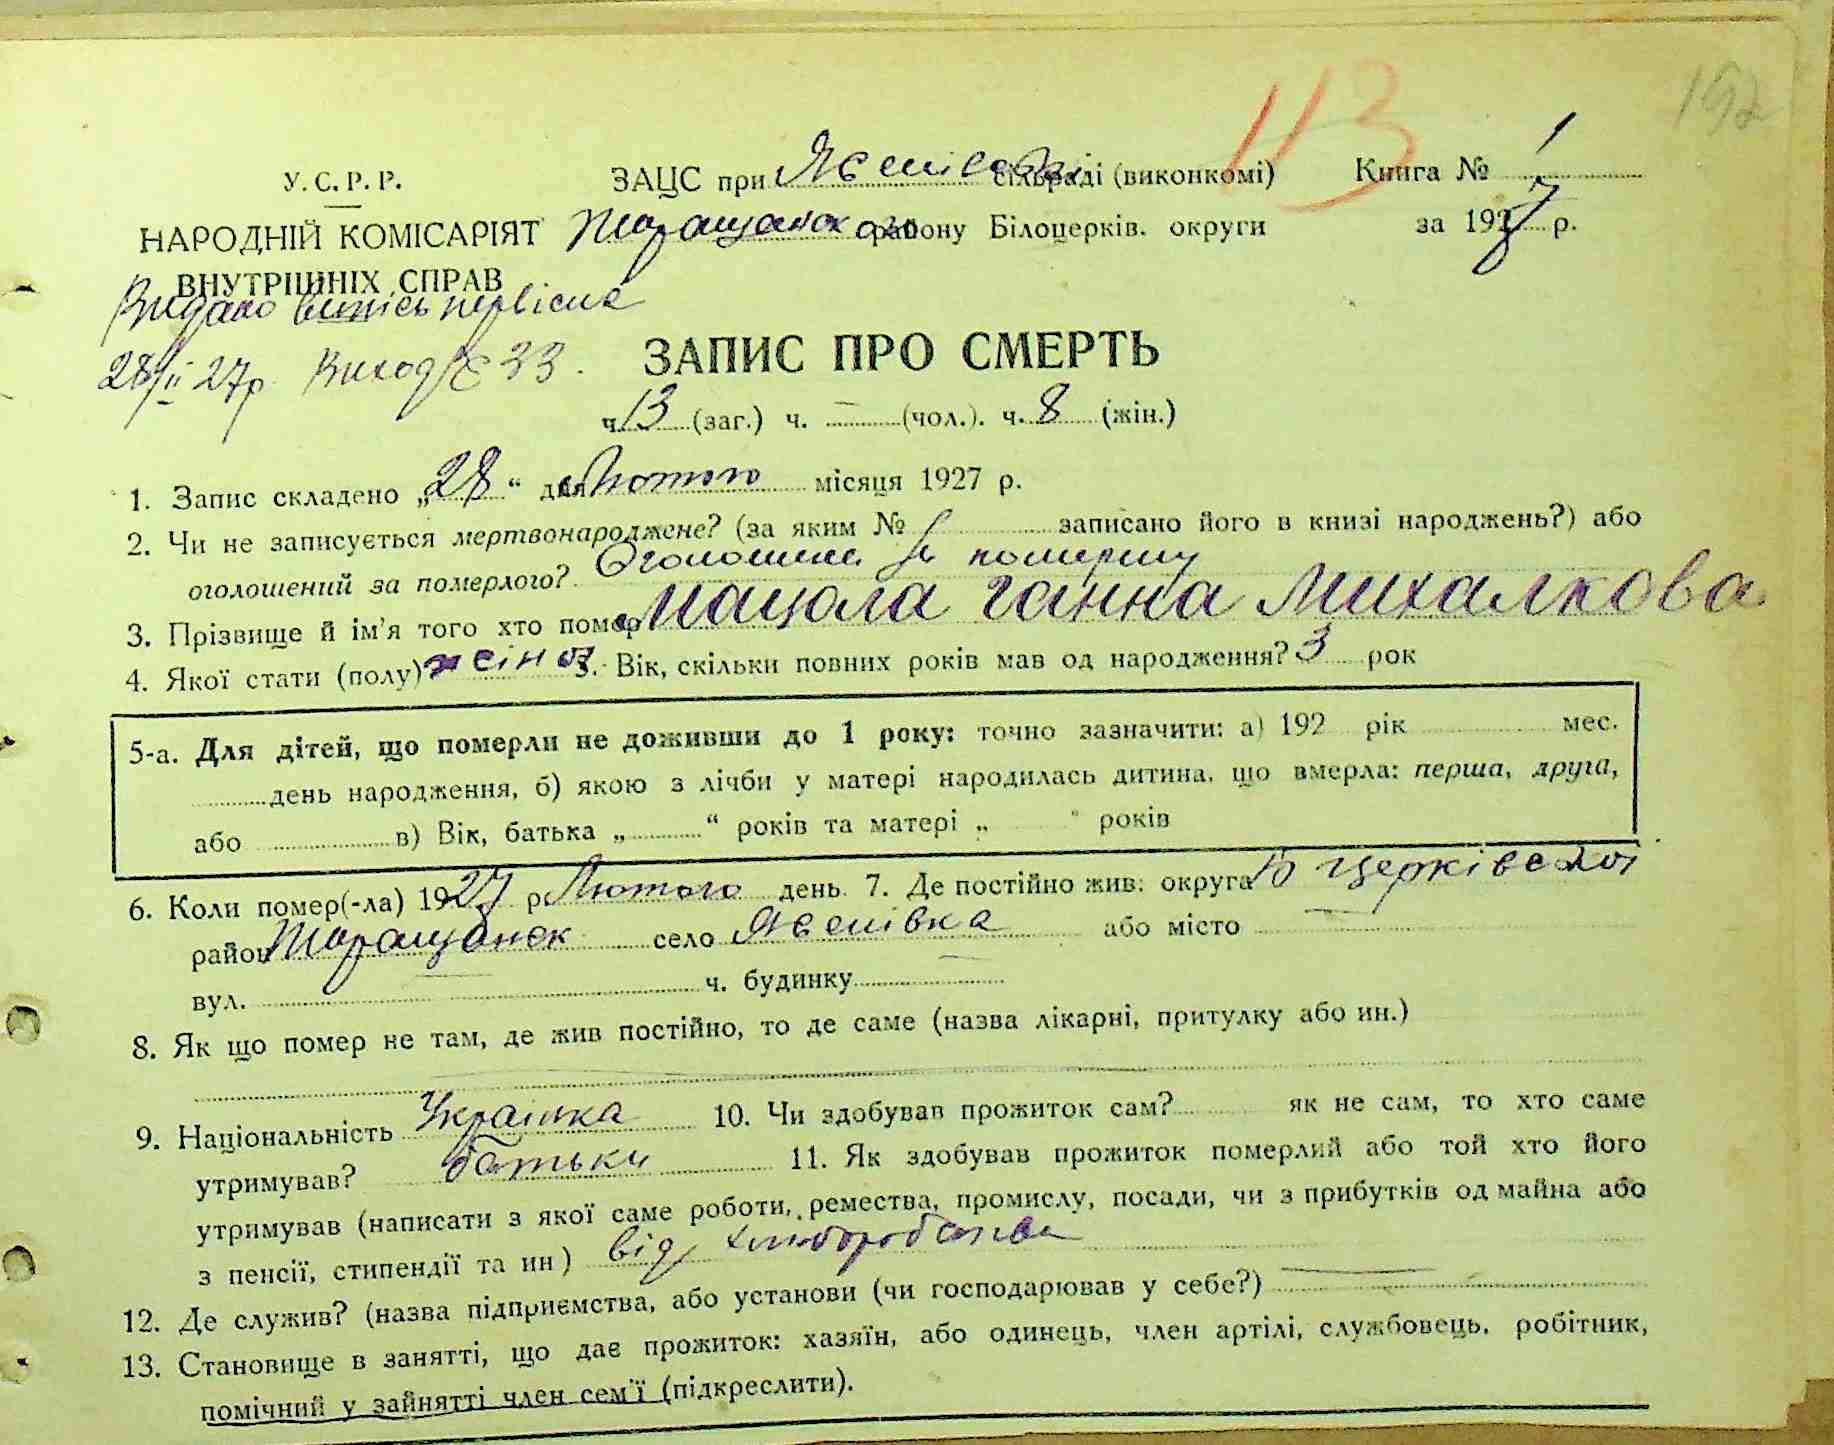 113
192
У. С. Р. Р.
ЗАЦС при Яснівській сільраді (виконкомі)
Книга № 1
НАРОДНІЙ КОМІСАРІЯТ
Таращанського району Білоцерків. округи
за 1927 р.
ВНУТРІШНІХ СПРАВ
Видано витісь первісна
28/ІІ 27 р. Виход № 33.
ЗАПИС ПРО СМЕРТЬ
ч. 13 (заг.) ч. — (чол.). ч. 8 (жін.)
1. Запис складено „28“ дня Лютого місяця 1927 р.
2. Чи не записується мертвонароджене? (за яким № записано його в книзі народжень?) або
оголошений за померлого? Оголошена за помершу
3. Прізвище й ім’я того хто помер Мацола Ганна Михалкова
4. Якої стати (полу) жіноч 5. Вік, скільки повних років мав од народження? 3 рок
5-а. Для дітей, що померли не доживши до 1 року: точно зазначити: а) 192 рік мес.
день народження, б) якою з лічби у матері народилась дитина, що вмерла: перша, друга,
або в) Вік, батька „ “ років та матері „ “ років
6. Коли помер(-ла) 1927 р. Лютого день 7. Де постійно жив: округа Б Церківської
район Таращанськ село Яснівка або місто —
вул. — ч. будинку —
8. Як що помер не там, де жив постійно, то де саме (назва лікарні, притулку або ин.)
9. Національність Українка 10. Чи здобував прожиток сам? як не сам, то хто саме
утримував? батьки 11. Як здобував прожиток померлий або той хто його
утримував (написати з якої саме роботи, ремества, промислу, посади, чи з прибутків од майна або
з пенсії, стипендії та ин) від хліборобства
12. Де служив? (назва підприємства, або установи (чи господарював у себе?) —
13. Становище в занятті, що дає прожиток: хазяїн, або одинець, член артілі, службовець, робітник,
помічний у зайнятті член сем’ї (підкреслити).